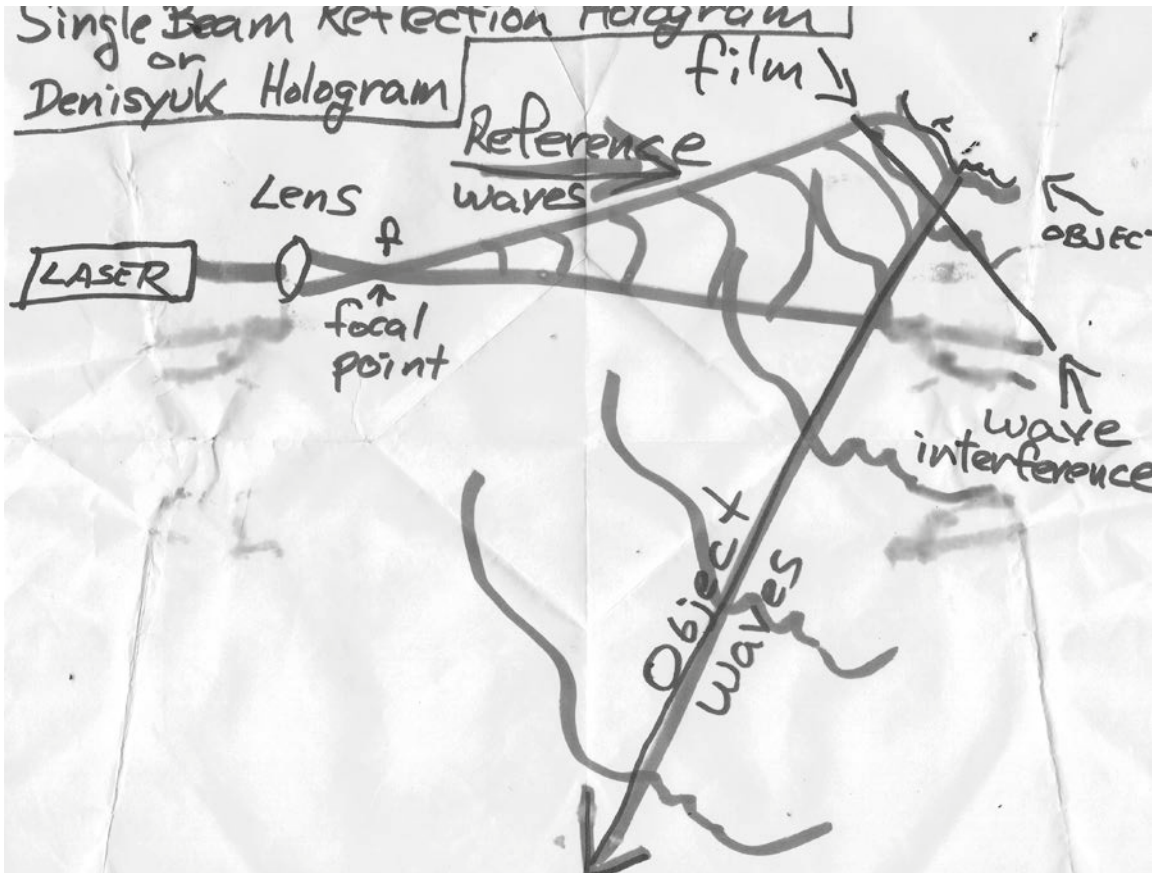 Single Beam Reflection Hologram
or
Denisyuk Hologram
film
Reference
waves
Lens
f
LASER
focal
point
OBJECT
wave
interference
Object
waves